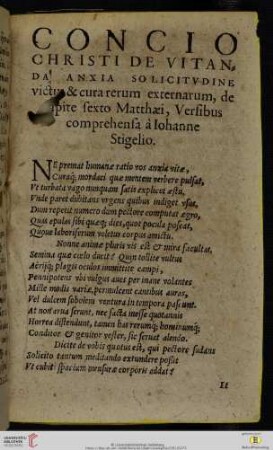 CONCIO
CHRISTI DE VITAN
DA ANXIA SOLICITVDINE
victus & cura rerum externarum, de
capite sexto Matthæi, Versibus
comprehensa à Iohanne
Stigelio.
NE premat humanæ ratio vos anxia vitæ,
Curaq; mordaci quæ mentem verbere pulsat,
Vt turbata vago nunquam satis explicet æstu,
Vnde paret dubitans urgens quibus indiget vsus,
Dum repetit numero dum pectore computat ægro,
Quis epulas sibi quæq; dies, quot pocula poscat,
Quone laboriferum veletur corpus amictu.
Nonne animæ pluris vis est & mira facultas,
Semina quæ cœlo ducit? Quin tollite vultus
Aërijq; plagis oculos immittite campi,
Pennipotens vbi vulgus aues per inane volantes
Mille modis variæ, permulcent cantibus auras,
Vel dulcem sobolem ventura in tempora pascunt.
At non arua serunt, nec facta messe quotannis
Horrea distendunt, tamen has rerumq; hominumq;
Conditor & genitor vester, sic seruat alendo.
Dicite de vobis quotus est, qui pectore sudans
Solicito tantum meditando extundere possit
Vt cubiti spacium mensura corporis addat?